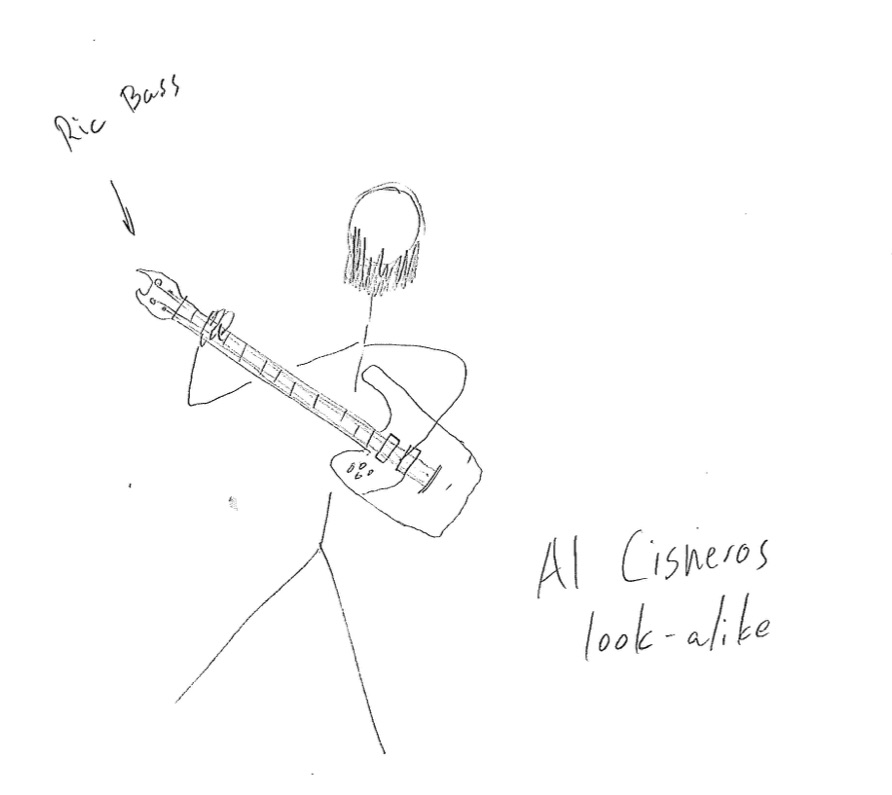 Ric Bass
Al Cisneros
look-alike